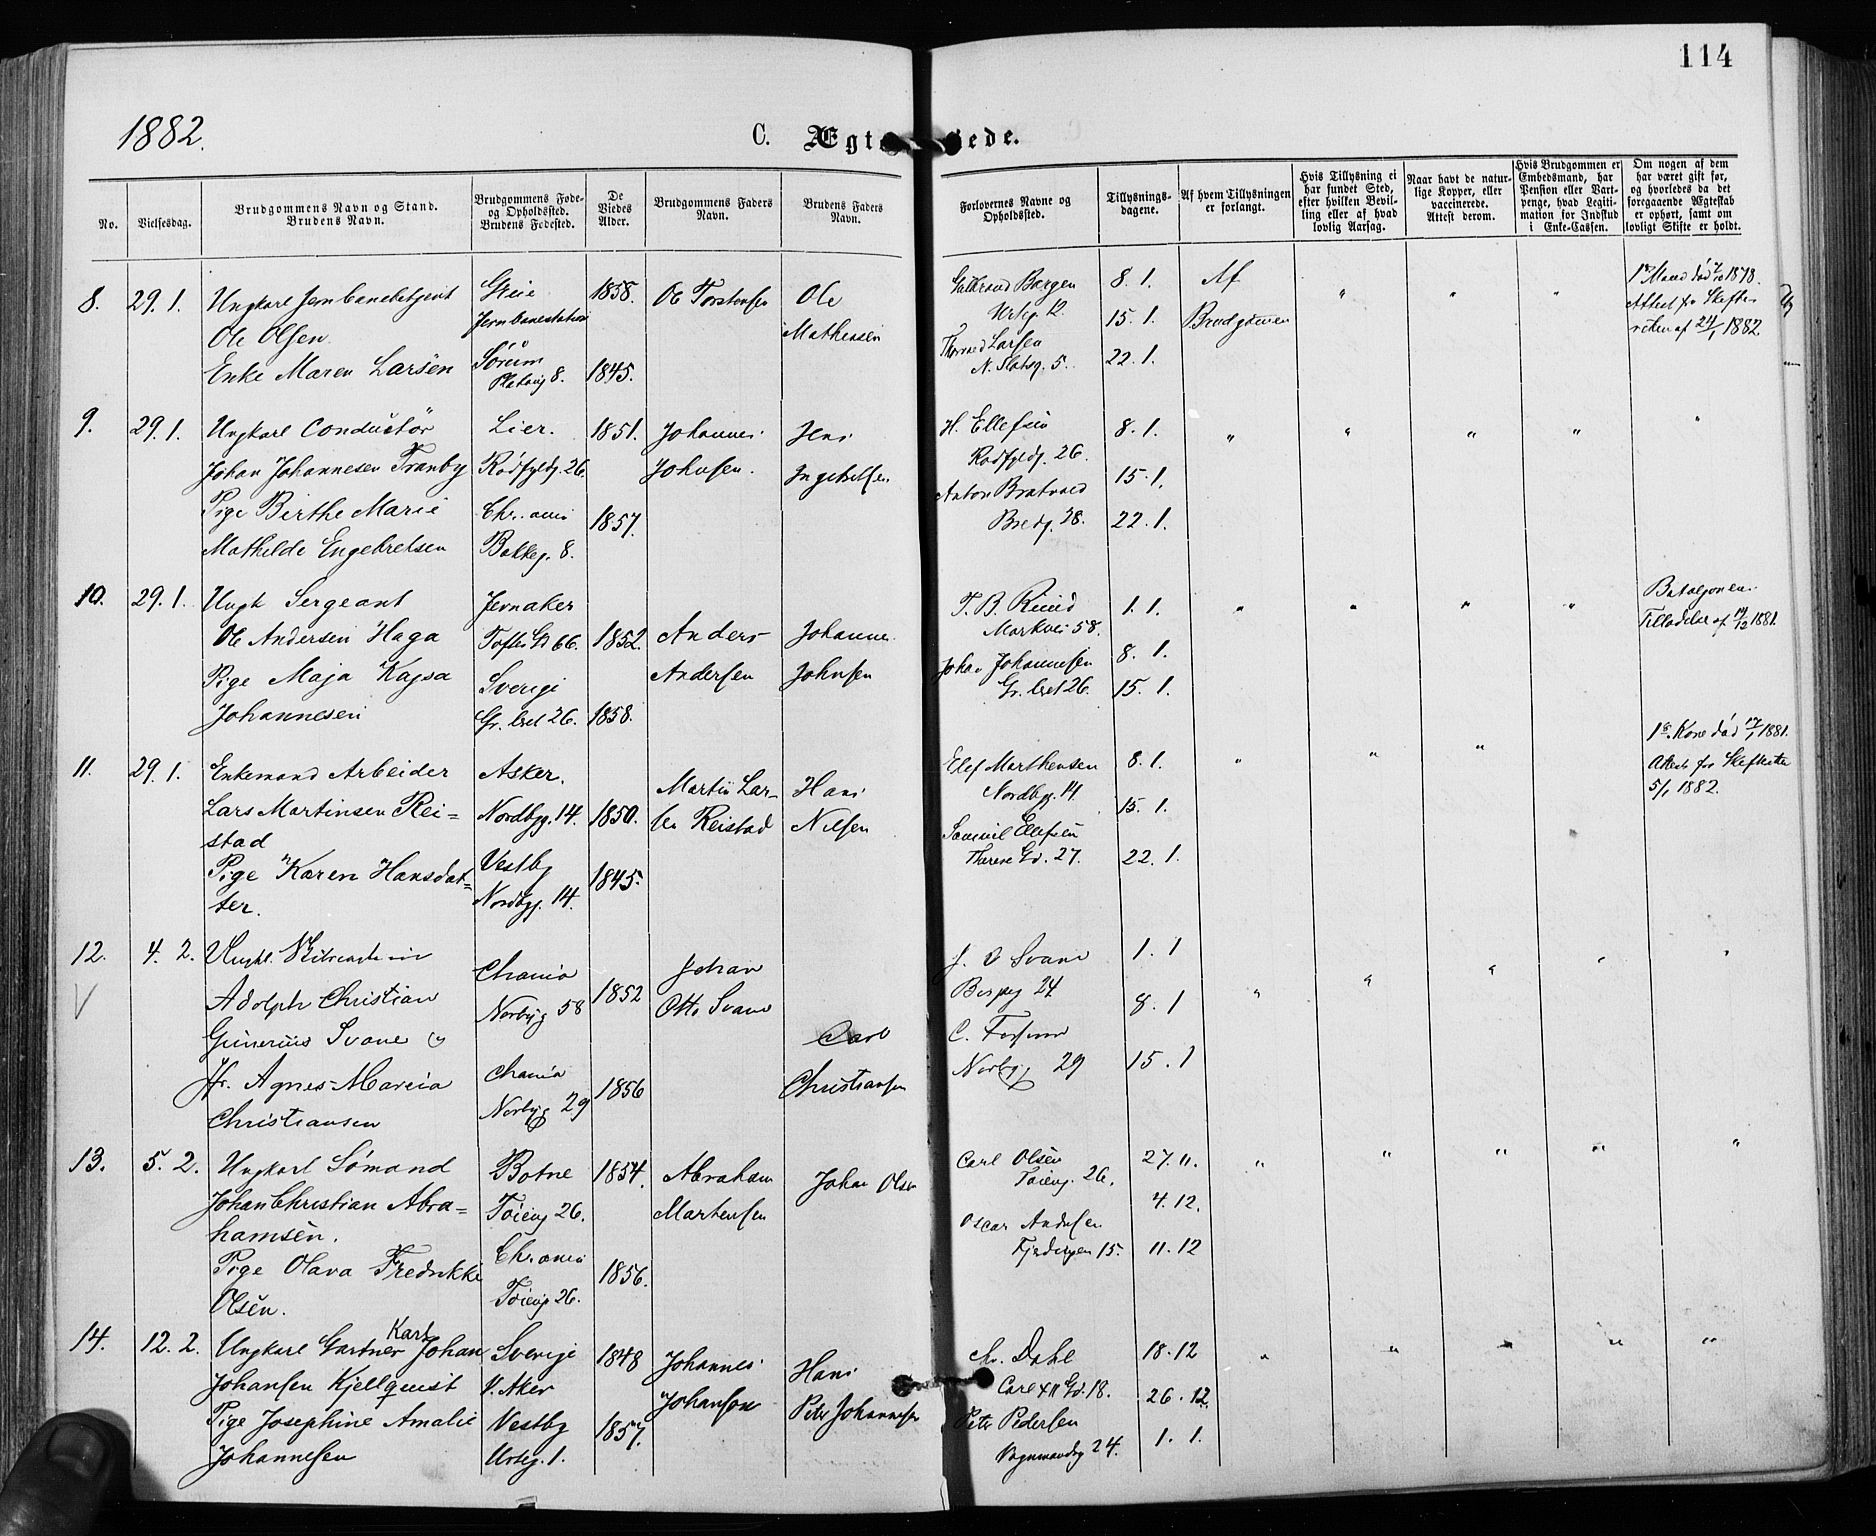 114
1882.
C. Ægt
iede.
No.
Vielsesdag.
Brudgommens Navn og Stand.
Brudens Navn.
Brudgommens Føde-
og Opholdssted.
Brudens Fødested.
De
Viedes
Alder.
Brudgommens Faders
Navn.
Brudens Faders
Navn.
Forlovernes Navne og
Opholdssted.
Tillysnings-
dagene.
Af hvem Tillysningen
er forlangt.
Hvis Tillysning ei
har fundet Sted,
efter hvilken Bevil-
ling eller af hvad
lovlig Aarsag.
Naar havt de natur-
lige Kopper, eller
vaccinerede.
Attest derom.
Hvis Brudgommen er
Embedsmand, har
Pension eller Vart-
penge, hvad Legiti-
mation for Indskud
i Enke-Cassen.
Om nogen af dem
har været gift før,
og hvorledes da det
foregaaende Ægteskab
er ophørt, samt om
lovligt Skifte er holdt.
8. 29. 1. Ungkarl Jernbanebetjent
Ole Olsen
Enke Maren Larsen
Jernbanestation
Sørum
8.
1858.
1845.
Ole Torstensen
Ole
Mathiesen
Borgen
12.
Larsen
N. Slotsg. 5.
8. 1.
15. 1.
22. 1.
Af
Brudgommen
1878.
24/1 1882.
9. 29. 1. Ungkarl Conductør
Johan Johannesen Tranby
Pige Birthe Marie
Mathilde Engebretsen
Lier.
Rødfyldg. 26.
Chr.ania
Bakkeg. 8.
1851.
1857.
Johannes
Johnsen.
Hans
Ingebretsen
H. Ellefsen
Rødfyldg. 26.
Anton
Bredg. 28.
8. 1.
15. 1.
22. 1.
10. 29. 1. Ungk Sergeant
Ole Andersen Haga
Pige Maja Kajsa
Johannesen
Jevnaker
Toftes Gd 66.
Sverige
Gr. Leret 26.
1852.
1858.
Anders
Andersen
Johannes
Johnsen
T. B. Ruud
Markvei 58.
Johan Johannesen
Gr. Leret 26.
1. 1.
8. 1.
15. 1.
Bataljonen
Tilladelse af 14/12 1881.
11. 29. 1. Enkemand Arbeider
Lars Martinsen Rei=
stad
Pige Karen Hansdat=
ter.
Asker.
Nordbyg. 14.
Vestby
Nordbyg. 14.
1850.
1845.
Martin Lar-
sen Reistad
Hans
Nilsen
Elef Marthensen
Nordbyg. 14.
Samuel Ellefsen
Therese Gd. 27.
8. 1.
15. 1.
22. 1.
1ste Kone død 17/1 1881.
5/1 1882.
12. 4. 2.
Adolph Christian
Gunerius Svane og
Jfr. Agnes Marcia
Christiansen
Chania
Norbyg 58
Chania
Norbyg 29
1852
1856
Johan
Otto Svane
Carl
Christiansen
J. O Svane
24
C.
Norbyg 29
1. 1
8. 1
15. 1
13. 5. 2. Ungkarl Sømand
Johan Christian Abra=
hamsen.
Pige Olava Fredrikke
Olsen.
Botne
Tøieng 26.
Chr.ania
Tøieng 26.
1854.
1856.
Abraham
Martensen
Johan Olsen
Carl Olsen
Tøieng. 26.
Oscar Andersen
15.
27. 11.
4. 12.
11. 12
14. 12. 2. Ungkarl Gartner Karl Johan
Johansen Kjellquist
Pige Josephine Amalie
Johannesen
Sverige
V. Aker
Vestby
Urteg. 1.
1848
1857.
Johannes
Johanson
Hans
Peter Johannesen
Chr. Dahl
Carl XII Gd. 18.
Peter Pedersen
Vognmandsg 24.
18. 12
26. 12.
1. 1.